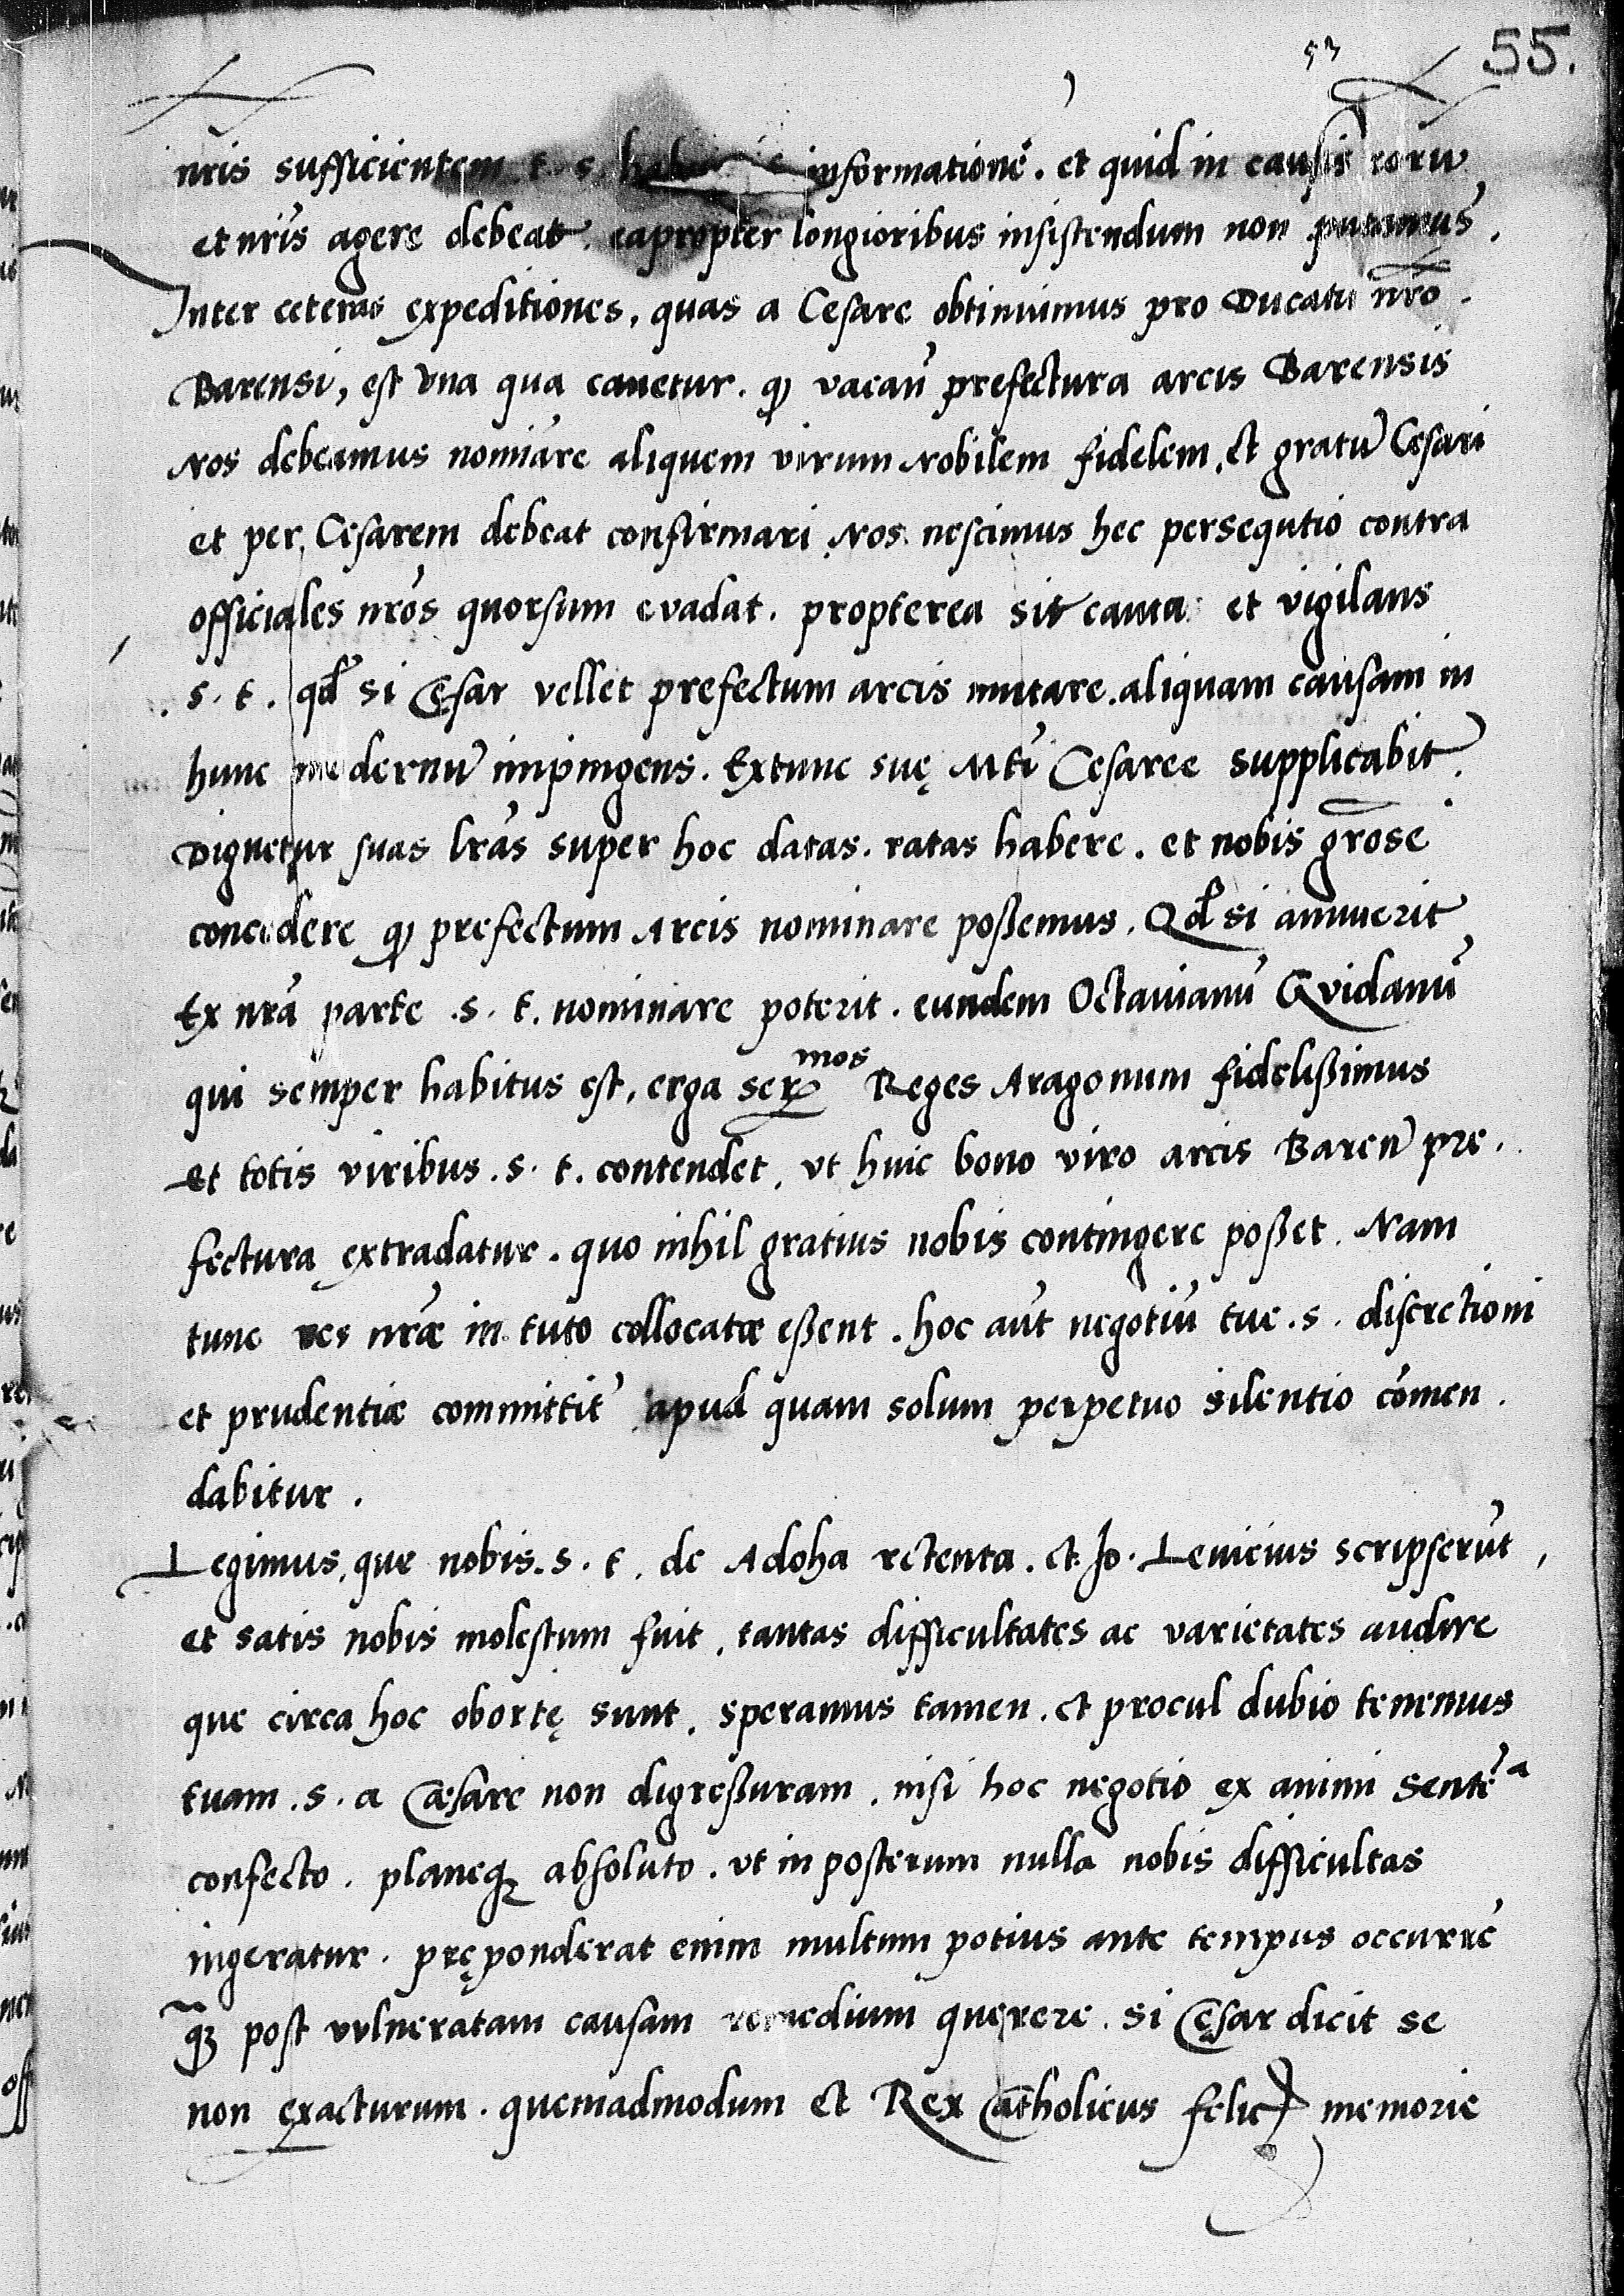 53
55.
nr̃is sufficientem t. s. informationẽ. et quid in causis eorũ
et nr̃is agere debeat. eapropter longioribus insistendum non putamus.
Inter ceteras expeditiones, quas a Cesare obtinuimus pro Ducatu nrõ.
Barensi, est Vna qua cauetur. ꝙ vacañ prefectura arcis Barensis
Nos debeamus nomiare aliquem virum Nobilem fidelem, et gratũ Cęsari
et per Cęsarem debeat confirmari. Nos nescimus hec persequtio contra
officiales nr̃os quorsum evadat. propterea sit cauta et vigilans
. s. t. qđ si Cęsar vellet prefectum arcis mutare. aliquam causam in
hunc modernũ impingens. Extunc suę Mt̃i Cesaree supplicabit.
Dignetur suas lr̃as super hoc datas. ratas habere. et nobis gr̃ose
concedere ꝙ prefectum Arcis nominare possemus. Qđ si annuerit
Ex nr̃a parte .s. t. nominare poterit. eundem Octauianũ Gvidanũ
qui semper habitus est. erga ser^mos Reges Aragonum fidelissimus
et totis viribus .s. t. contendet. vt huic bono viro arcis Bareñ pre.
fectura extradatur. quo nihil gratius nobis contingere posset. Nam
tunc res nr̃æ in tuto collocatæ essent. hoc aũt negotiũ tue .s. discretioni
et prudentiæ committit̃ apud quam solum perpetuo silentio cõmen.
dabitur.
Legimus, que nobis .s. t. de Adoha retenta. et Jo. Leuicius scripserũt,
et satis nobis molestum fuit. tantas difficultates ac varietates audire
que circa hoc obortę sunt. speramus tamen. et procul dubio tenemus
tuam .s. a Cæsare non digressuram. nisi hoc negotio ex animi Sentẽ^a
confecto. planeqꝫ absoluto. vt in posterum nulla nobis difficultas
ingeratur. pręponderat enim multum potius ante tempus occurrẽ
qꝫ̃ post vulneratam causam remedium quęrere. si Cęsar dicit se
non exacturum. quemadmodum et Rex Catholicus felicꝭ memorie